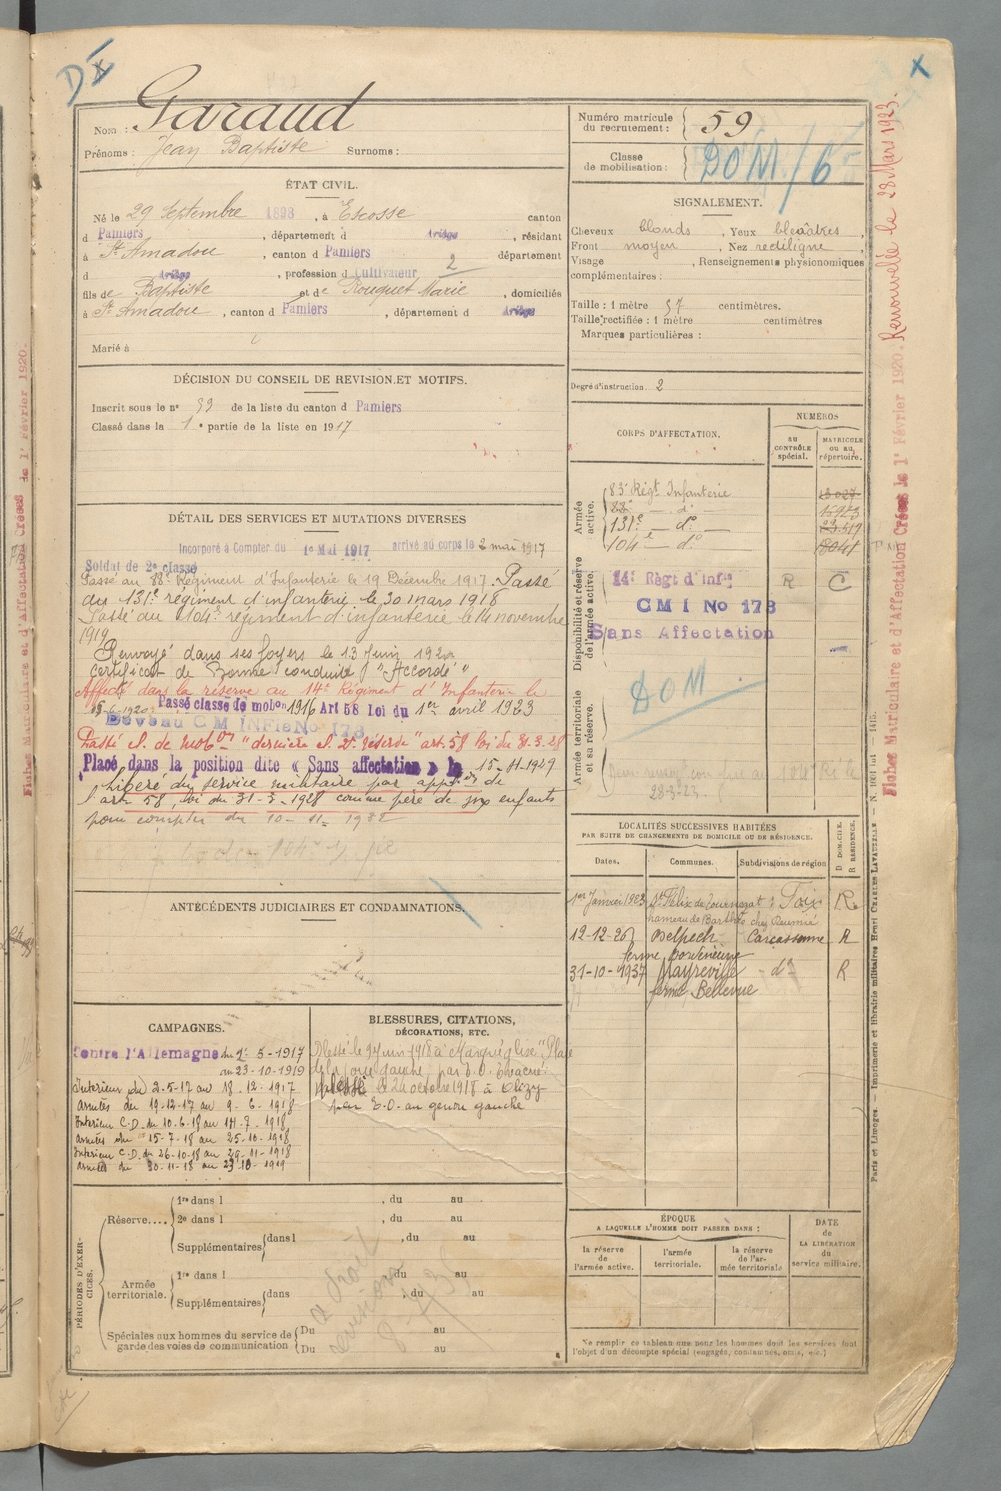 D X
X
Nom : Garaud
Prénoms : Jean Baptiste Surnoms :
Numéro matricule du recrutement : 59
Classe de mobilisation : DOM / 6
ÉTAT CIVIL.
Né le 29 Septembre 1898, à Escosse canton
d Pamiers, département d Ariège, résidant
à St Amadou, canton d Pamiers département
d Ariège, profession d Cultivateur 2
fils de Baptiste et de Rouquet Marie, domiciliés
à St Amadou, canton d Pamiers, département d Ariège
Marié à
SIGNALEMENT.
Cheveux blonds, Yeux bleuâtres,
Front moyen, Nez rectiligne,
Visage , Renseignements physionomiques
complémentaires :
Taille : 1 mètre 57 centimètres.
Taille rectifiée : 1 mètre centimètres
Marques particulières :
Degré d'instruction 2
DÉCISION DU CONSEIL DE REVISION ET MOTIFS.
Inscrit sous le n° 59 de la liste du canton d Pamiers
Classé dans la 1e partie de la liste en 1917
DÉTAIL DES SERVICES ET MUTATIONS DIVERSES
Incorporé à Compter du 1er Mai 1917 arrivé au corps le 2 mai 1917
Soldat de 2e classe
Passé au 88e Régiment d'Infanterie le 19 Décembre 1917. Passé
au 131e régiment d'infanterie le 30 mars 1918
Passé au 104e régiment d'infanterie le 14 novembre
1919
Renvoyé dans ses foyers le 13 Juin 1920
certificat de Bonne conduite "Accordé"
Affecté dans la réserve au 14e Régiment d'Infanterie le
15-6-1920 Passé classe de mobon 1916 Art 58 Loi du 1er avril 1923
Devenu CM INFie No 178
Passé cl. de mobon "dernière cl. 2e réserve" art. 58 loi du 31.3.28
Placé dans la position dite « Sans affectation » le 15-11-1929
Libéré du service militaire par appon de
l'art 58, loi du 31-3-1928 comme père de six enfants
pour compter du 10-11-1932
CORPS D'AFFECTATION.
NUMÉROS
AU CONTRÔLE spécial.
MATRICULE OU AU répertoire.
Armée active.
83e Régt Infanterie
88e — do —
131e — do
104e — do
8041
Disponibilité et réserve de l'armée active.
14e Régt d'Infie R C
CMI No 178
Sans Affectation
DOM
Armée territoriale et sa réserve.
28-3-23
LOCALITÉS SUCCESSIVES HABITÉES
PAR SUITE DE CHANGEMENTS DE DOMICILE OU DE RÉSIDENCE.
Dates. Communes. Subdivisions de région D DOMICILE. R RÉSIDENCE.
1er Janvier 1923 St Félix de Tournegat Foix R
12-12-26 Belpech Carcassonne R
31-10-1937 Mayreville - do R
ferme Bellevue
ANTÉCÉDENTS JUDICIAIRES ET CONDAMNATIONS.
CAMPAGNES.
Contre l'Allemagne du 2-5-1917
au 23-10-1919
Intérieur du 2-5-17 au 18-12-1917
armées du 19-12-17 au 9-6-1918
Intérieur C.D. du 10-6-18 au 14-7-1918
armées du 15-7-18 au 25-10-1918
Intérieur C.D. du 26-10-18 au 29-11-1918
armées du 30-11-18 au 23-10-1919
BLESSURES, CITATIONS,
DÉCORATIONS, ETC.
Blessé le 9 Juin 1918 à Marquéglise "Plaie
de la joue gauche par E.O.
blessé le 24 octobre 1918 à Olizy
par E.O. au genou gauche
PÉRIODES D'EXERCICES.
Réserve.... 1re dans l , du au
2e dans l , du au
Supplémentaires dans l , du au
Armée territoriale. 1re dans l du au
Supplémentaires dans , du au
Spéciales aux hommes du service de garde des voies de communication Du au
Du au
a droit
révision
ÉPOQUE
A LAQUELLE L'HOMME DOIT PASSER DANS :
DATE de LA LIBÉRATION du service militaire.
la réserve de l'armée active.
l'armée territoriale.
la réserve de l'armée territoriale
Ne remplir ce tableau que pour les hommes dont les services font
l'objet d'un décompte spécial (engagés, condamnés, omis, etc.)
Fiches Matriculaire et d'Affectation Créées le 1er Février 1920. Renouvellée le 28 Mars 1923.
Paris et Limoges. — Imprimerie et librairie militaires Henri CHARLES-LAVAUZELLE
Fiches Matriculaire et d'Affectation Créées le 1er Février 1920.